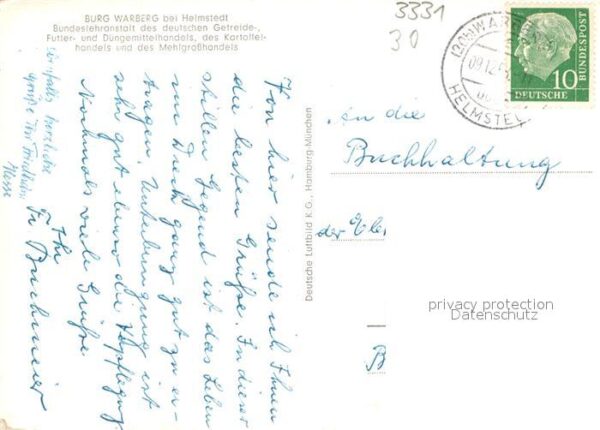 BURG WARBERG bei Helmstedt
Bundeslehranstalt des deutschen Getreide-,
Futter- und Düngemittelhandels, des Kartoffel-
handels und des Mehlgroßhandels
3331
30
Von hier sende ich Ihnen
die besten Grüße. In dieser
stillen Gegend ist das Leben
im Dreck ganz gut zu er-
tragen. Unterbringung ist
sehr gut ebenso die Verpflegung.
Nochmals viele Grüße
Ihr
Fr. Buchmeier
Ebenfalls herzliche
Grüße
Hesse
Deutsche Luftbild K.G., Hamburg-München
(20b) WARB
09.12.
HELMSTE
10
DEUTSCHE
BUNDESPOST
An die
Buchhaltung
der
B
privacy protection
Datenschutz